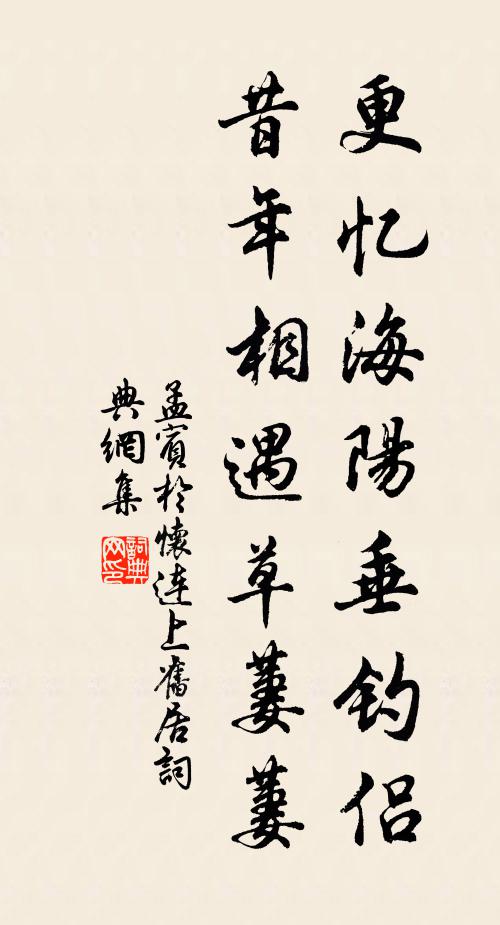 更忆海陽垂钓侣
昔年相遇草萋萋
孟賓於懷连上舊居詞
典網集
詞典
网印